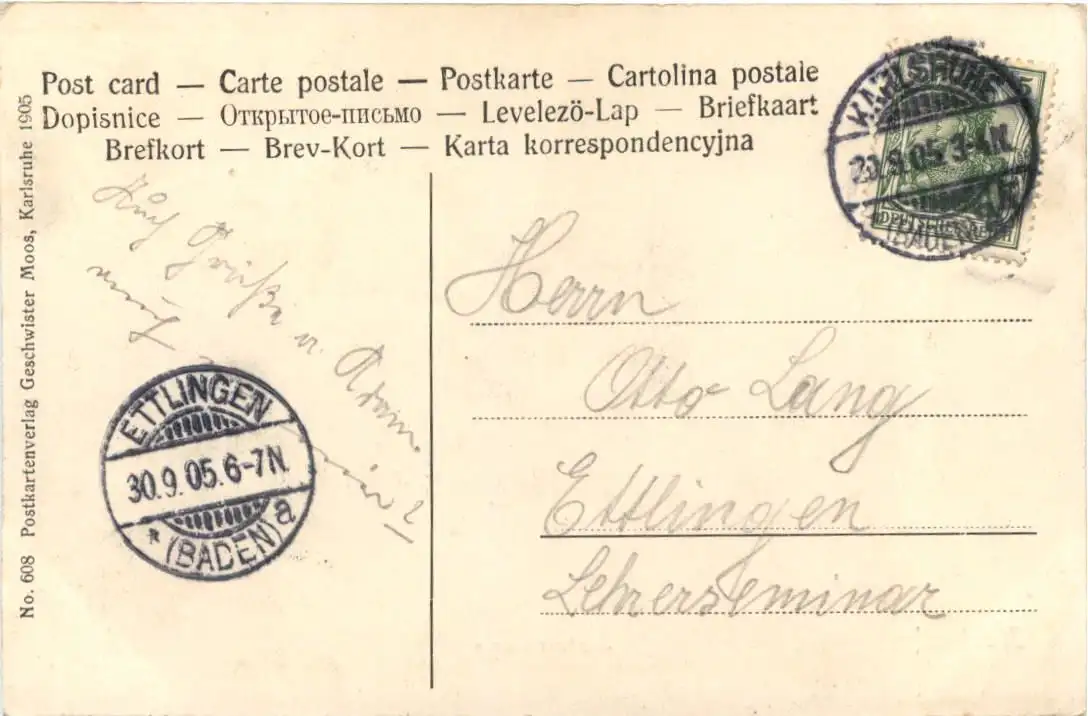 Post card — Carte postale — Postkarte — Cartolina postale
Dopisnice — Открытое-письмо — Levelezö-Lap — Briefkaart
Brefkort — Brev-Kort — Karta korrespondencyjna
No. 608 Postkartenverlag Geschwister Moos, Karlsruhe 1905
KARLSRUHE
9.05.3-4N.
(BADEN)
5
DEUTSCHES REICH
Grüße u.
ETTLINGEN
30.9.05.6-7N.
* (BADEN) a
Herrn
Otto Lang
Ettlingen
Lehrerseminar